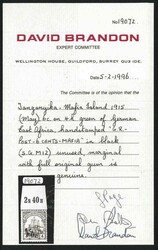 No. 19072.
DAVID BRANDON
EXPERT COMMITTEE
WELLINGTON HOUSE, GUILDFORD, SURREY GU3 1DE.
Date 5-2-1996.
The Committee is of the opinion that the
Tanganyika - Mafia Island 1915
(May) 6c on 4h green of German
East Africa, handstamped "G.R.
Post - 6 CENTS - MAFIA" in black
(S.G. M12) unused, marginal
with full original gum is
genuine.
19072
2x40x
David Brandon